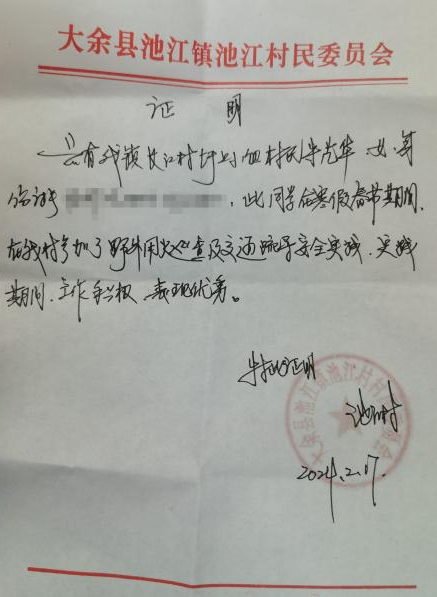 大余县池江镇池江村民委员会
证 明
兹有我镇长江村圩上组村民 华 女 身
份证号 此同学在寒假春节期间
在我村参加了野外用火巡查及交通疏导安全实践.实践
期间.工作积极 表现优秀。
特此证明
池江村
大余县池江镇池江村村民委员会
2024.2.17.